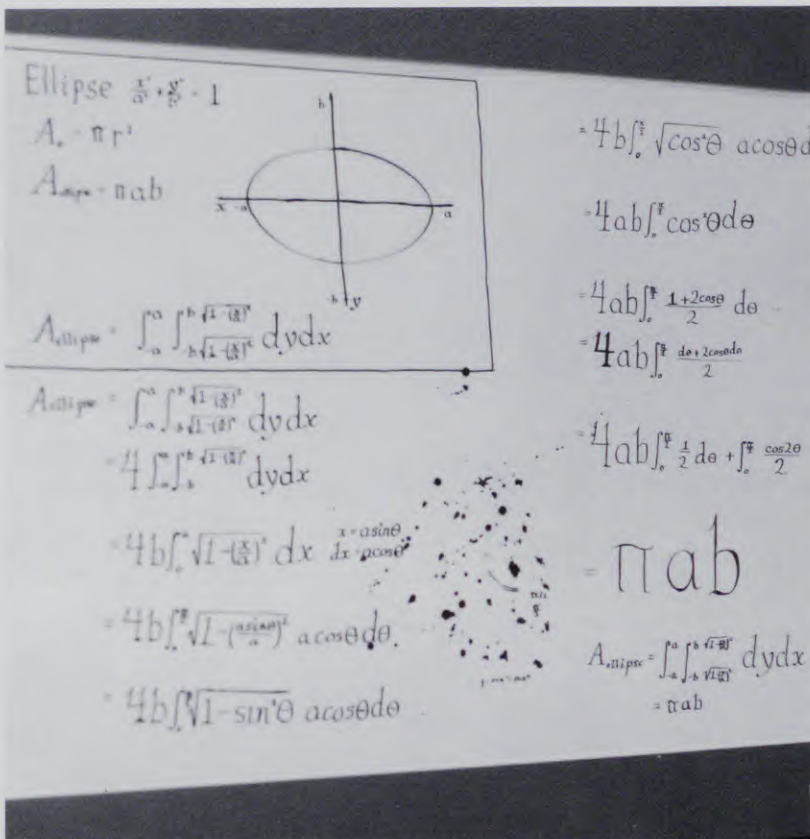 Ellipse x²/a² + y²/b² = 1
A₀ = πr²
A ellipse = πab
b
x -a a
-b y
A ellipse = ∫₋ₐᵃ ∫₋b√(1-(x/a)²)^b√(1-(x/a)²) dydx
A ellipse = ∫₋ₐᵃ ∫₋b√(1-(x/a)²)^b√(1-(x/a)²) dydx
= 4∫∫^b√(1-(x/a)²) dydx
= 4b∫₀ᵃ √(1-(x/a)²) dx x=asinθ
dx=acosθ
= 4b∫₀^π/2 √(1-(asinθ/a)²) acosθdθ
= 4b∫ √(1-sin²θ) acosθdθ
= 4b∫₀^π/2 √(cos²θ) acosθd
= 4ab∫₀^π/2 cos²θdθ
= 4ab∫₀^π/2 (1+2cosθ)/2 dθ
= 4ab∫₀^π/2 (dθ+2cosθdθ)/2
= 4ab∫₀^π/2 1/2 dθ + ∫₀^π/2 cos2θ/2
= πab
A ellipse = ∫₋ₐᵃ ∫₋b√(1-(x/a)²)^b√(1-(x/a)²) dydx
= πab